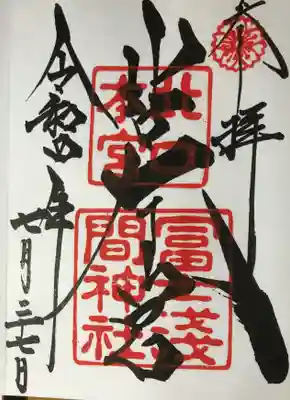 奉拝
北口本宮
北口
本宮
冨士浅
間神社
令和四年
七月二十七日